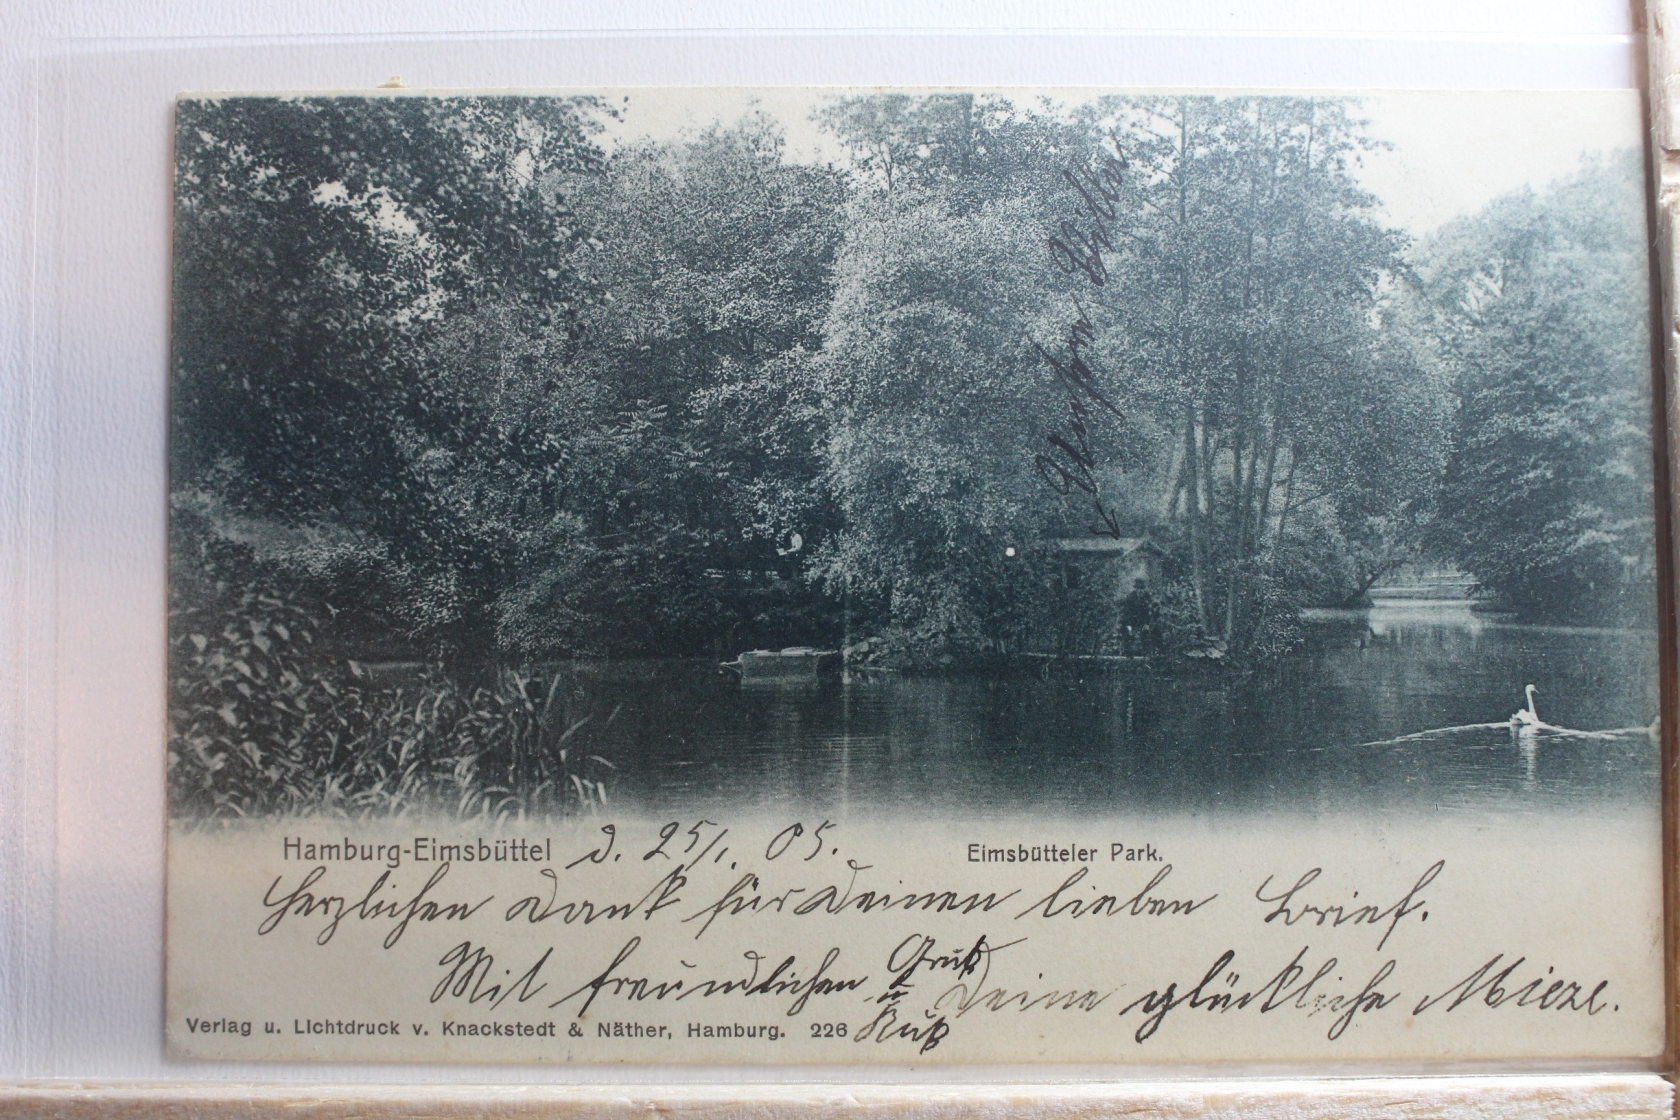 Hamburg-Eimsbüttel d. 25/1. 05.
Eimsbütteler Park.
Herzlichen Dank für Deinen lieben Brief.
Mit freundlichen Gruß u Kuß Deine glückliche Mieze.
Verlag u. Lichtdruck v. Knackstedt & Näther, Hamburg. 226